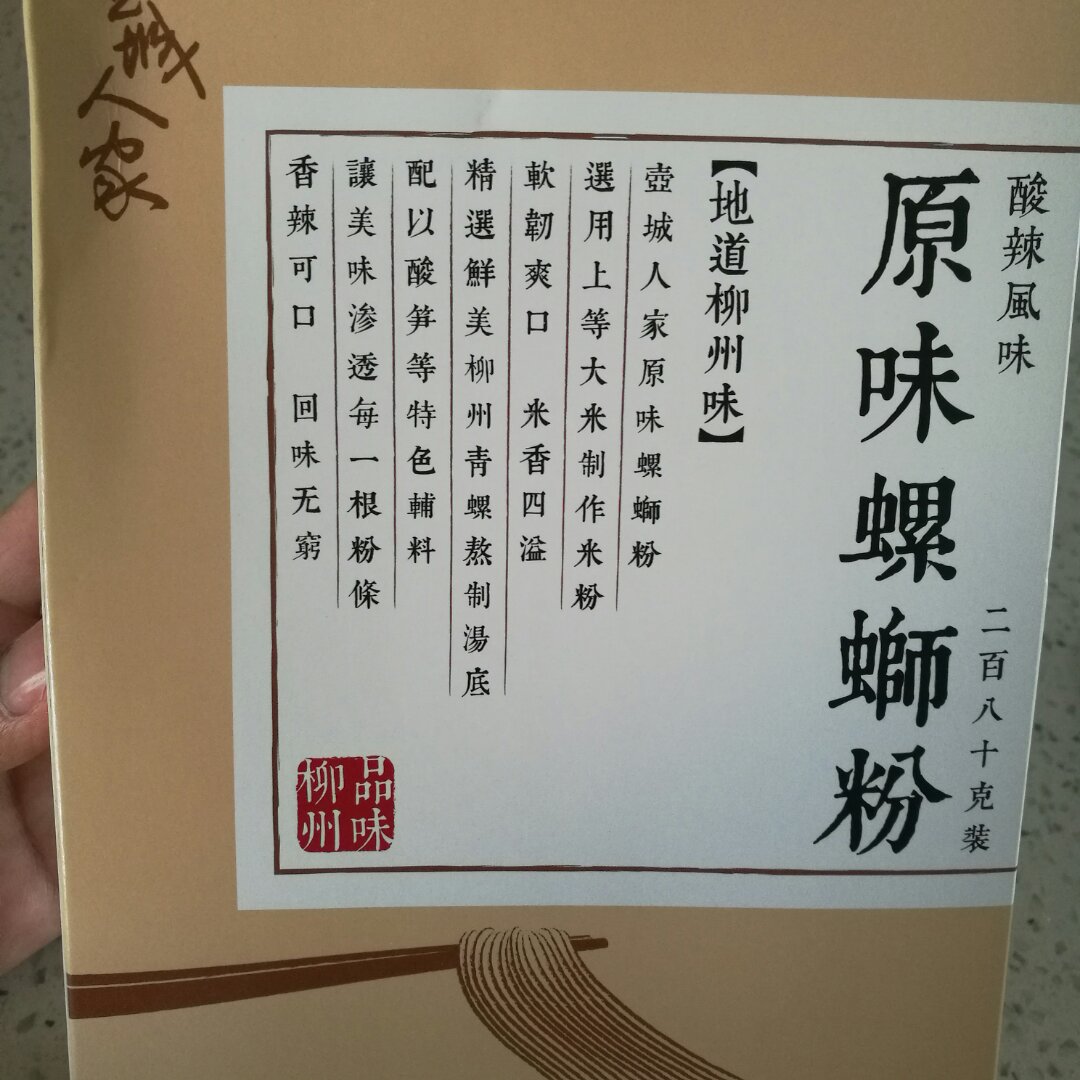 酸辣風味
原味螺螄粉
二百八十克裝
【地道柳州味】
壺城人家原味螺螄粉
選用上等大米制作米粉
軟韌爽口 米香四溢
精選鮮美柳州青螺熬制湯底
配以酸笋等特色輔料
讓美味渗透每一根粉條
香辣可口 回味无窮
品味柳州
城人家